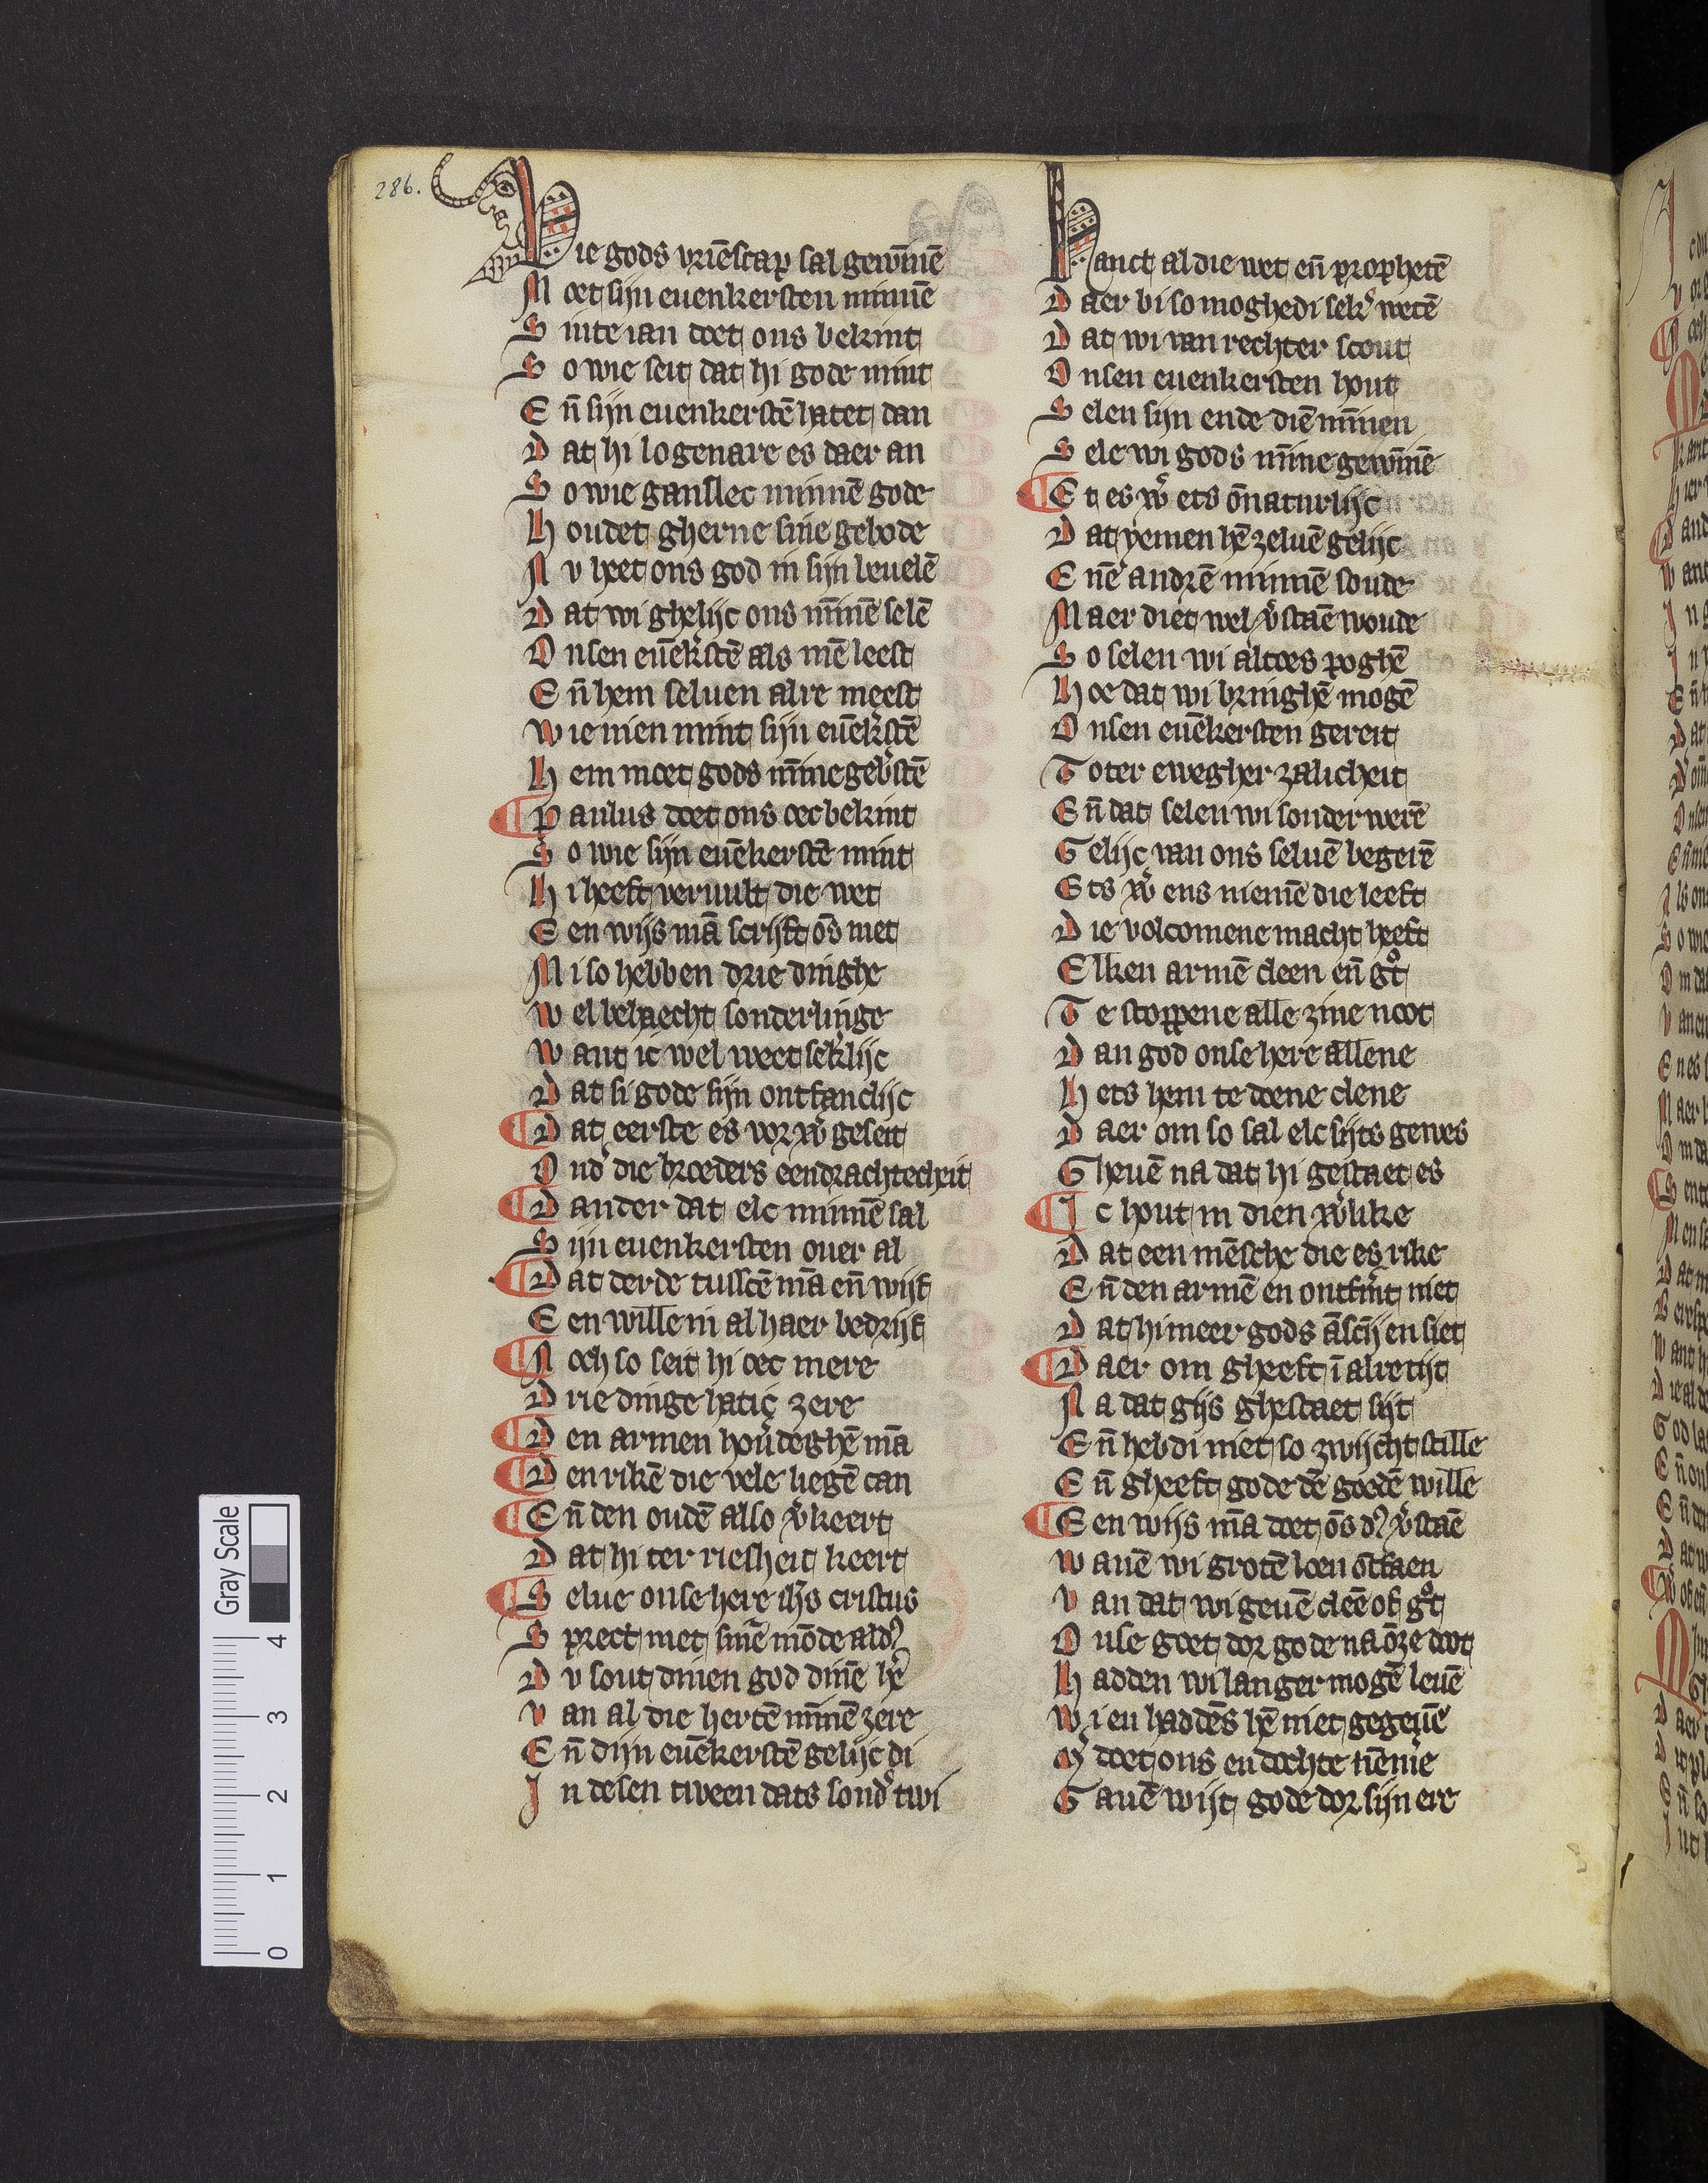 286.
Wie gods vriēscap sal gewīnē
Moet sijn euenkersten minnē
Sinte ian doet ons bekint
So wie seit dat hi gode mint
Eñ sijn euenkerstē hatet dan
Dat hi logenare es daer an
So wie gansllec minnē gode
Houdet gherne sine gebode
Nu heet ons god in sijn beuelē
Dat wi ghelijc ons mīnē selē
Onsen euēk'stē als mē leest
Eñ hem seluen alre meest
Wie nien mint sijn euēk'stē
Hem moet gods mīne geb'stē
¶ Paulus doet ons oec bekint
So wie sijn euēkerstē mint
Hi heeft veruult die wet
Een wijs mā scrijft ōs met
Mi so hebben drie dinghe
Wel behaecht sonderlinge
Want ic wel weet sek'lijc
Dat si gode sijn ontfanclijc
¶ Dat eerste es vorw' geseit
Ond' die broeders eendrachtecheit
¶ Dander dat elc minnē sal
Sijn euenkersten ouer al
¶ Dat derde tusscē mā eñ wijf
Een wille in al haer bedrijf
¶ Noch so seit hi oec mere
Drie dinge hatic zere
¶ Den armen houdeghē mā
¶ Den rikē die vele liegē can
¶ Eñ den oudē also v'keert
Dat hi ter riesheit keert
¶ Selue onse here ihs cristus
Sprect met sinē mōde ald'
Du sout dinen god dinē he'
Van al die hertē mīnē zere
Eñ dijn euēkerstē gelijc di
In desen tween dats sond' twi
Hanct al die wet eñ prophetē
Daer bi so moghedi sek' wetē
Dat wi van rechter scout
Onsen euenkersten hout
Selen sijn ende diē mīnen
Sele wi gods mīne gewīnē
¶ Et es w' ets ōnaturlijc
Dat yemen hē zeluē gelijc
Enē andrē minnē soude
Maer diet wel v'staē woude
So selen wi altoes poghē
Hoe dat wi bringhē mogē
Onsen euēkersten gereit
Toter ewegher zalicheit
Eñ dat selen wi sonder werē
Gelijc van ons seluē begerē
Ets w' ens niemē die leeft
Die volcomene macht heeft
Elken armē cleen eñ g°t
Te stoppene alle zine noot
Dan god onse here allene
Hets hem te doene clene
Daer om so sal elc sijts gewes
Gheuē na dat hi gestaet es
¶ Ic hout in dien w'like
Dat een mēsche die es rike
Eñ den armē en ontf'mt niet
Dat hi meer gods āscijn siet
¶ Daer om gheeft ī alre tijt
Na dat gijs ghestaet sijt
Eñ hebdi niet so zwijcht stille
Eñ gheeft gode dē goedē wille
¶ Een wijs mā doet ōs d' v'staē
Wanē wi grotē loen ōtfaen
Van dat wi geuē cleē of g°t
Onse goet dor gode na ōze doot
Hadden wi langer mogē leuē
Wi en haddēs hē niet gegeuē
M' doet ons en dochte nēme'
Gauē wijt gode dor sijn ere
Gray Scale
4
3
2
1
0